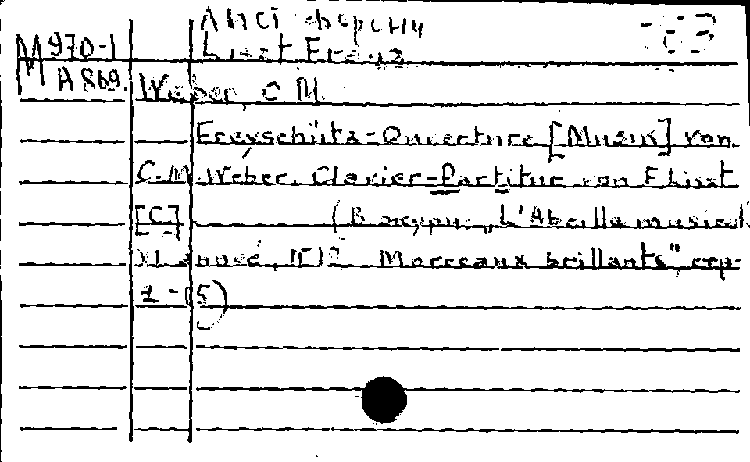 Лист Ференц
M 970-1 Liszt Franz
M A 869. Weber, C. M.
Freyschütz-Ouverture [Musik] von
C.M. Weber. Clavier-Partitur von F. Liszt
[C] (В журн. „L'Abeille musicale
année, N12 Morceaux brillants", стр.
1-15)